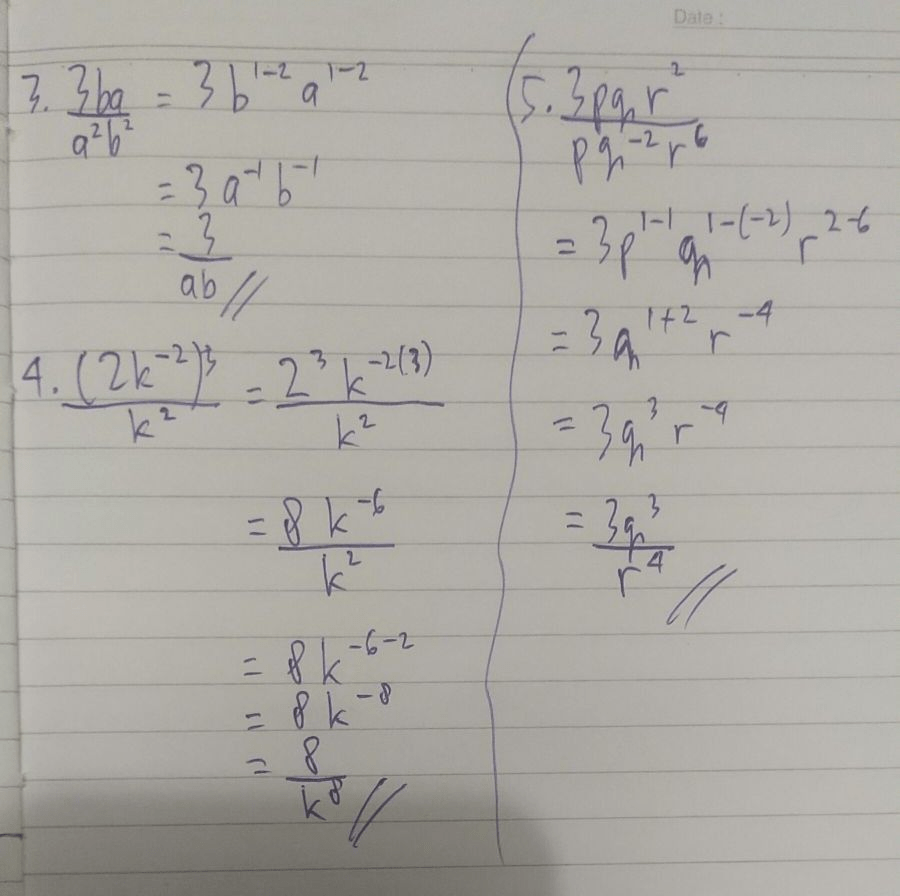 Date :
3. 3ba/a²b² = 3 b¹⁻² a¹⁻²
= 3 a⁻¹ b⁻¹
= 3/ab //
4. (2k⁻²)³/k² = 2³ k⁻²⁽³⁾/k²
= 8 k⁻⁶/k²
= 8 k⁻⁶⁻²
= 8 k⁻⁸
= 8/k⁸ //
5. 3pqr²/pq⁻²r⁶
= 3p¹⁻¹ q¹⁻⁽⁻²⁾ r²⁻⁶
= 3 q¹⁺² r⁻⁴
= 3q³ r⁻⁴
= 3q³/r⁴ //